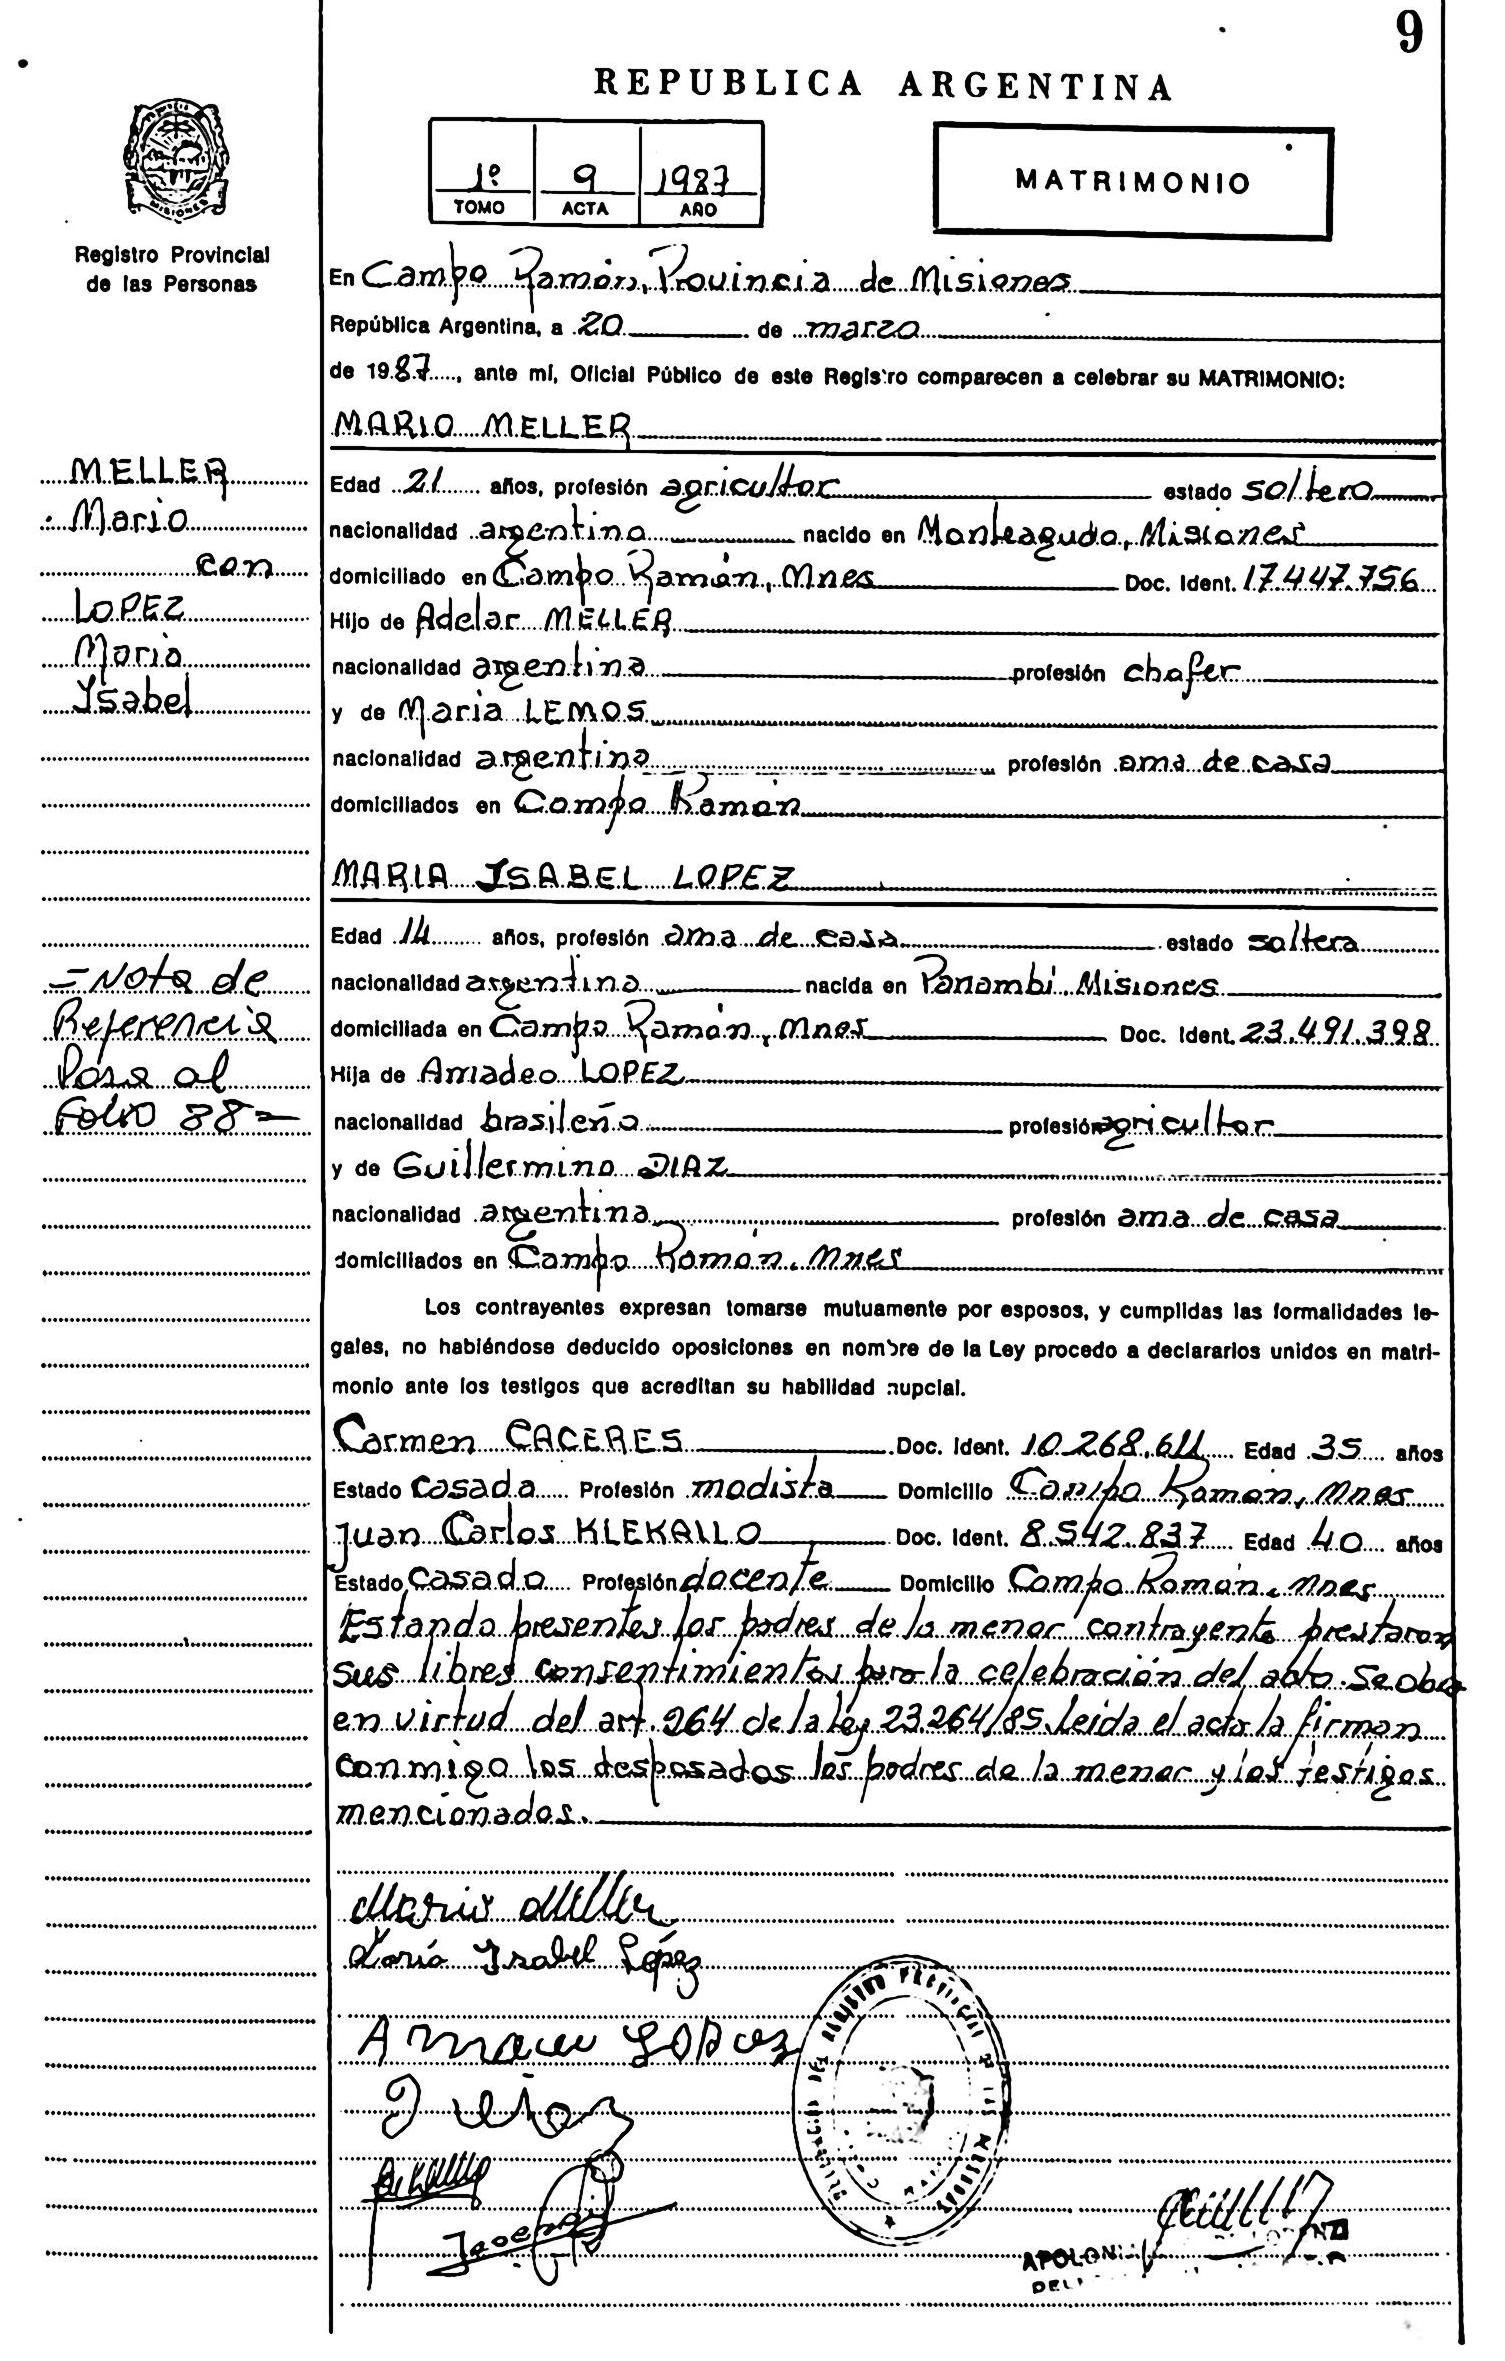 9
REPUBLICA ARGENTINA
MISIONES
Registro Provincial
de las Personas
1º 9 1987
TOMO ACTA AÑO
MATRIMONIO
En Campo Ramón, Provincia de Misiones
República Argentina, a 20 de marzo
de 1987, ante mí, Oficial Público de este Registro comparecen a celebrar su MATRIMONIO:
MARIO MELLER
MELLER
Mario
con
LOPEZ
Maria
Ysabel
Edad 21 años, profesión agricultor estado soltero
nacionalidad argentina nacido en Monteagudo, Misiones
domiciliado en Campo Ramón, Mnes Doc. Ident. 17.447.756
Hijo de Adelar MELLER
nacionalidad argentina profesión chofer
y de Maria LEMOS
nacionalidad argentina profesión ama de casa
domiciliados en Campo Ramón
MARIA YSABEL LOPEZ
Edad 14 años, profesión ama de casa estado soltera
nacionalidad argentina nacida en Panambí, Misiones
domiciliada en Campo Ramón, Mnes Doc. Ident. 23.491.398
Hija de Amadeo LOPEZ
nacionalidad brasileña profesión agricultor
y de Guillermina DIAZ
nacionalidad argentina profesión ama de casa
domiciliados en Campo Ramón, Mnes
= Nota de
Referencia
Pasa al
Folio 88 =
Los contrayentes expresan tomarse mutuamente por esposos, y cumplidas las formalidades le-
gales, no habiéndose deducido oposiciones en nombre de la Ley procedo a declararlos unidos en matri-
monio ante los testigos que acreditan su habilidad nupcial.
Carmen CACERES Doc. Ident. 10.268.611 Edad 35 años
Estado casada Profesión modista Domicilio Campo Ramón, Mnes
Juan Carlos KLEKAILO Doc. Ident. 8.542.837 Edad 40 años
Estado casado Profesión docente Domicilio Campo Ramón, Mnes
Estando presentes los padres de la menor contrayente prestaron
sus libres consentimientos para la celebración del acto. Se obra
en virtud del art. 264 de la ley 23.264/85. Leida el acta la firman
conmigo los desposados los padres de la menor y los testigos
mencionados.
Mario Meller
María Ysabel López
DELEGACION DEL REGISTRO PROVINCIAL DE LAS PERSONAS
APOLON